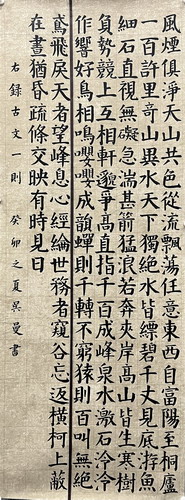 風煙俱淨天山共色從流飄蕩任意東西自富陽至桐廬
一百許里奇山異水天下獨絕水皆縹碧千丈見底游魚
細石直視無礙急湍甚箭猛浪若奔夾岸高山皆生寒樹
負勢競上互相軒邈爭高直指千百成峰泉水激石泠泠
作響好鳥相鳴嚶嚶成韻蟬則千轉不窮猿則百叫無絕
鳶飛戾天者望峰息心經綸世務者窺谷忘返橫柯上蔽
在晝猶昏疏條交映有時見日
右錄古文一則 癸卯之夏吴曼書